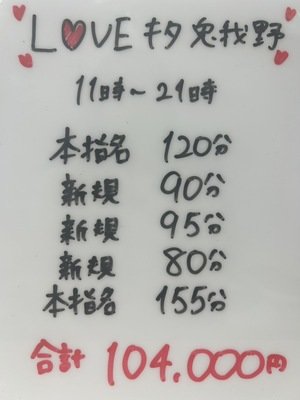 LOVE キタ兎我野
11時～21時
本指名 120分
新規 90分
新規 95分
新規 80分
本指名 155分
合計 104,000円